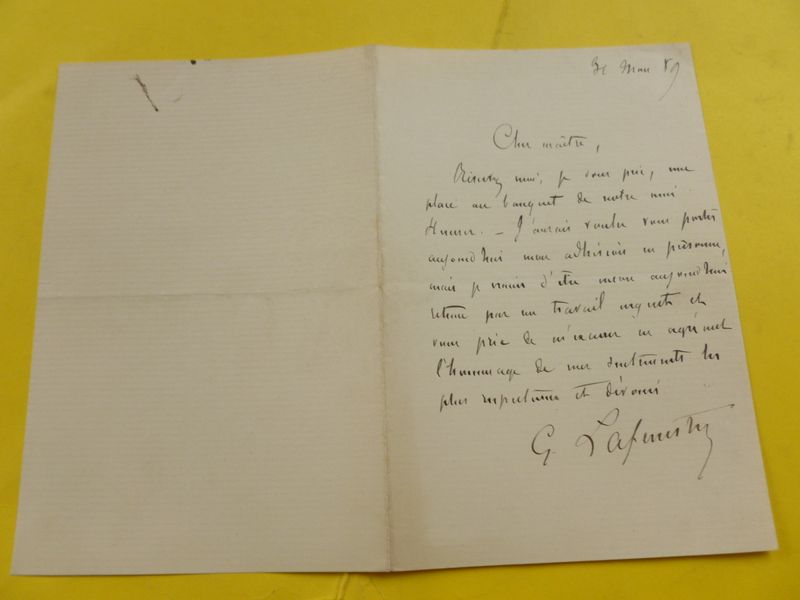 Mars 89
Cher maître,
Réservez moi, je vous prie, une
place au banquet de notre ami
Henner. – J'aurais voulu vous porter
aujourd'hui mon adhésion en personne,
mais je crains d'être même aujourd'hui
retenu par un travail urgent et
vous prie de m'excuser en agréant
l'hommage de mes sentiments les
plus respectueux et dévoués
G. Lafenestre